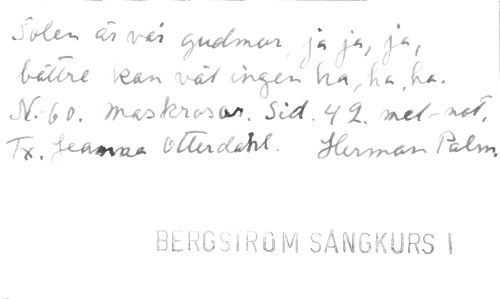 Solen är vår gudmor, ja ja, ja,
bättre kan väl ingen ha, ha, ha.
N:60. Maskrosor. Sid. 42. mel-not.
Tx. Jeanna Otterdahl. Herman Palm.
BERGSTRÖM SÅNGKURS I